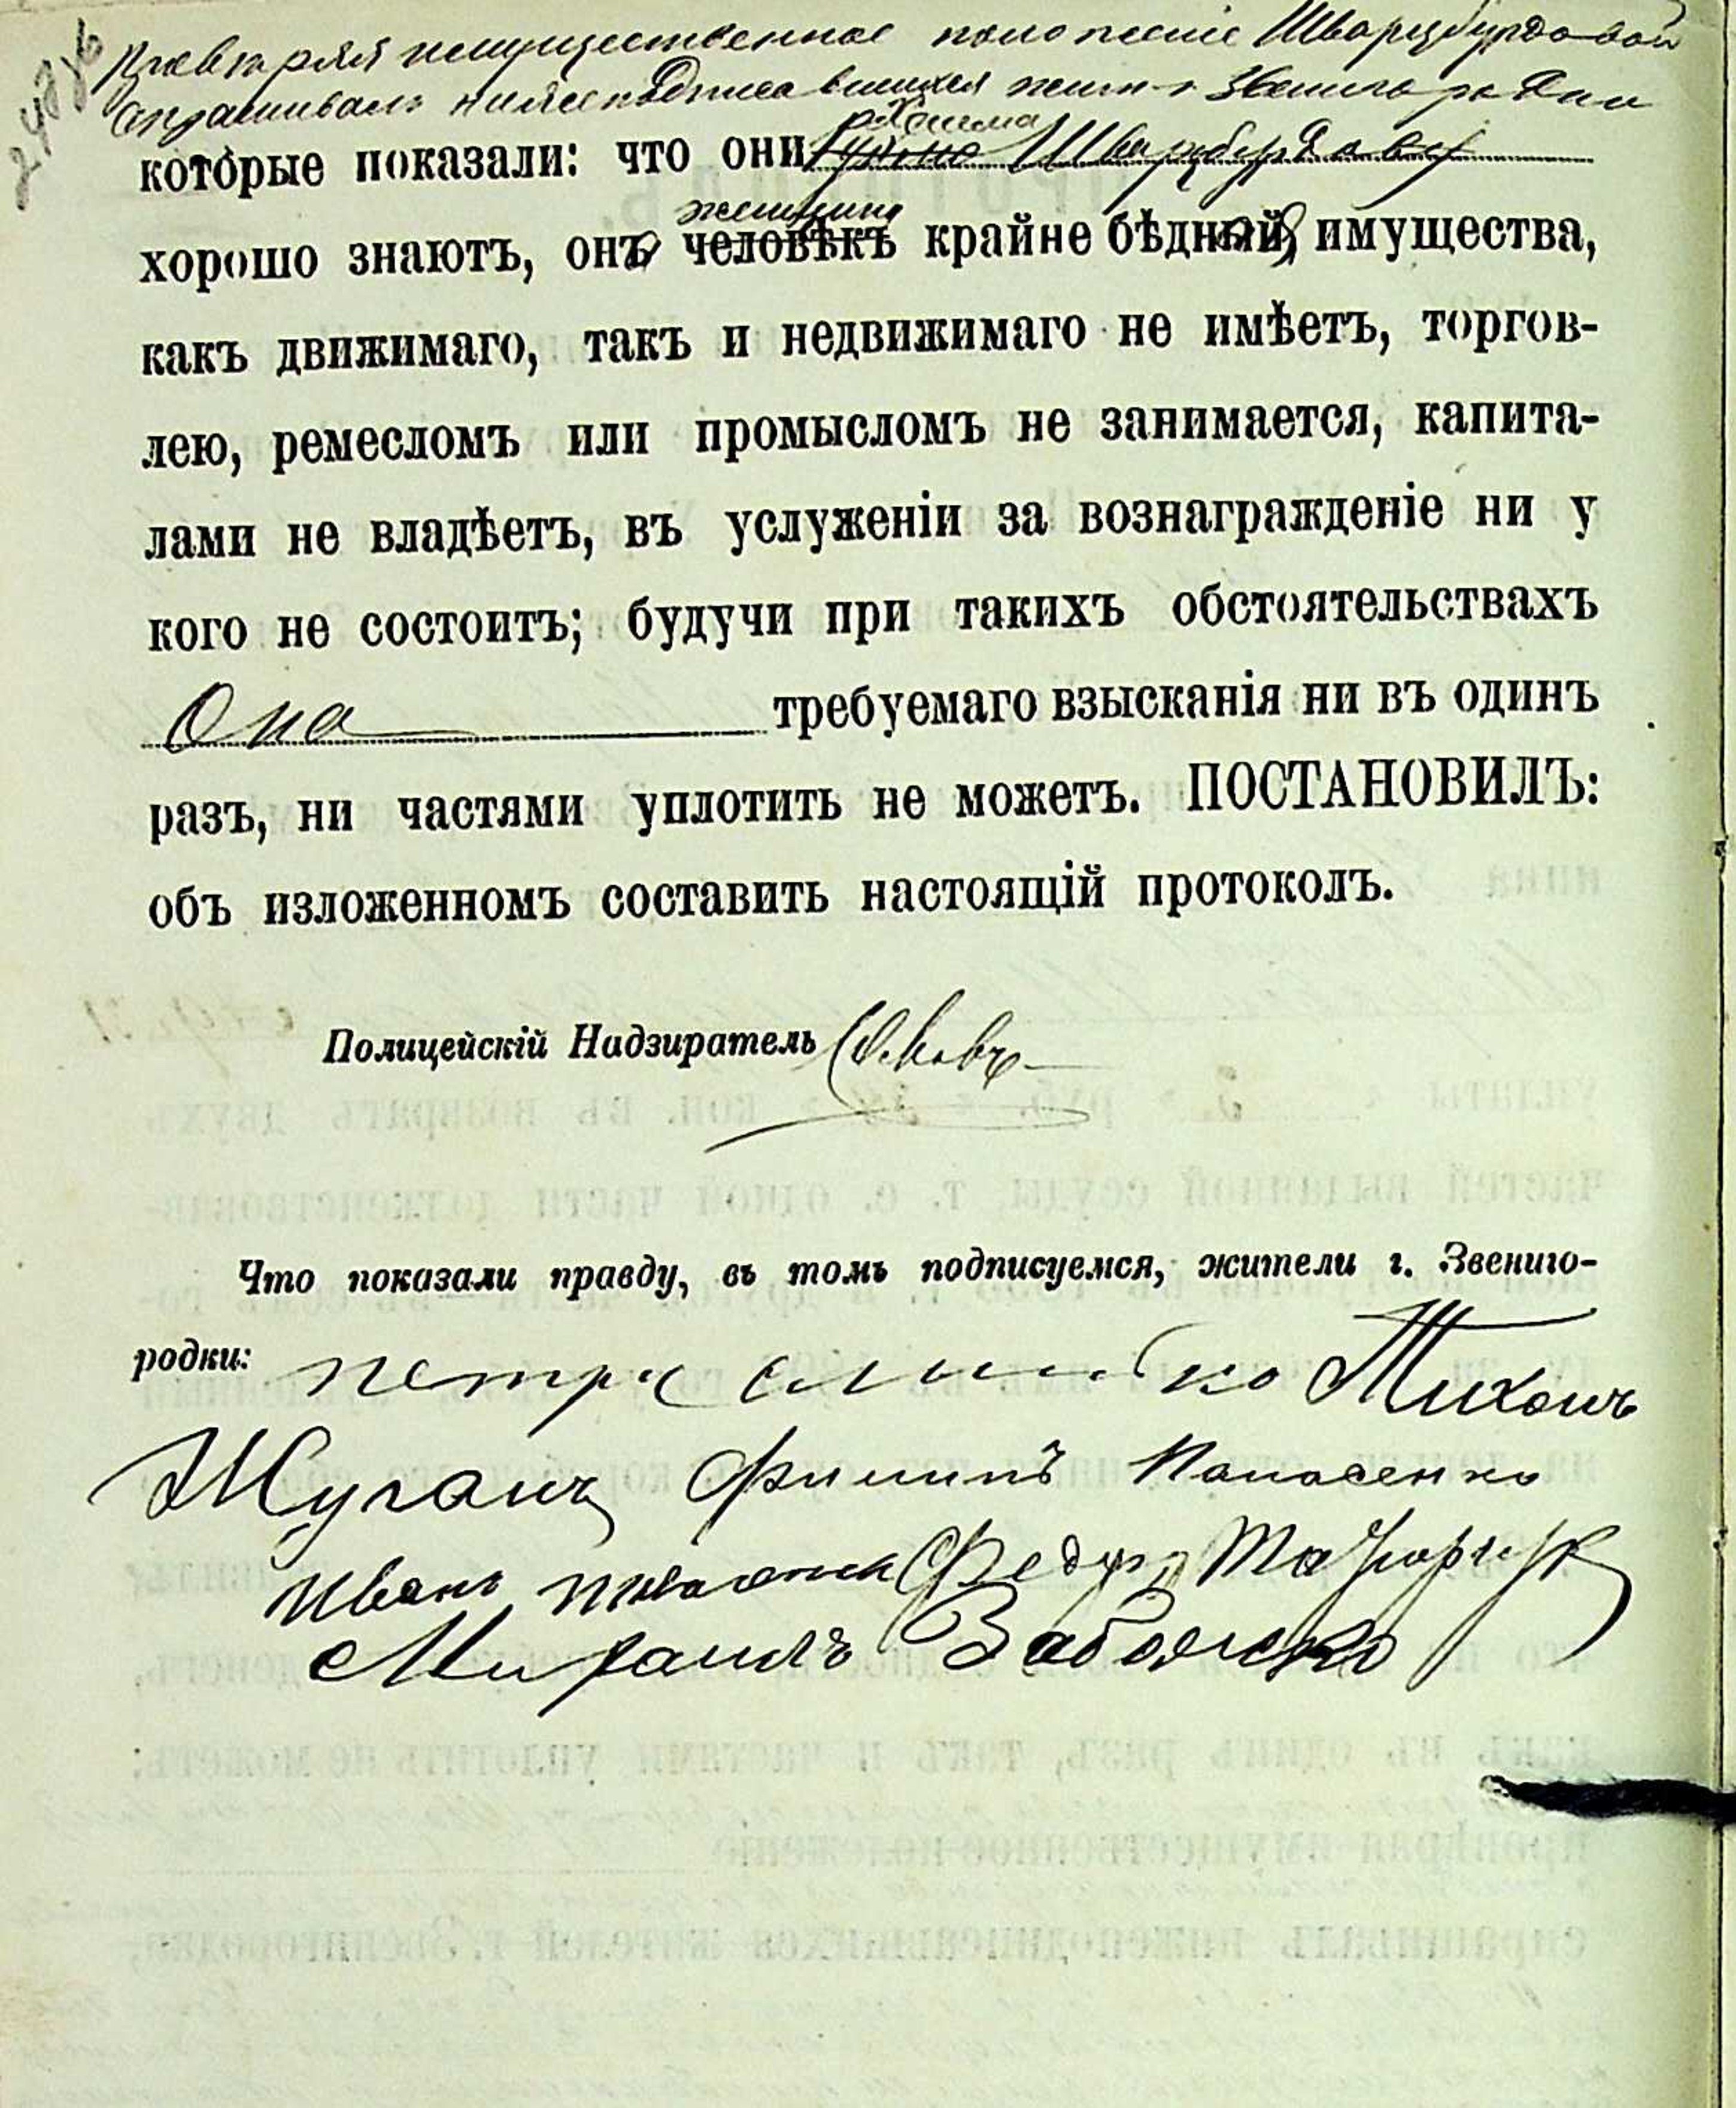 Провѣряя имущественное положеніе Шварцбурдовой
спрашивалъ нижеподписавшихся жит. г. Звенигородки
которые показали: что они Шварцбурдову
женщина
хорошо знаютъ, она человѣкъ крайне бѣдная, имущества,
какъ движимаго, такъ и недвижимаго не имѣетъ, торгов-
лею, ремесломъ или промысломъ не занимается, капита-
лами не владѣетъ, въ услуженіи за вознагражденіе ни у
кого не состоитъ; будучи при такихъ обстоятельствахъ
Она требуемаго взысканія ни въ одинъ
разъ, ни частями уплотить не можетъ. ПОСТАНОВИЛЪ:
объ изложенномъ составить настоящій протоколъ.
Полицейскій Надзиратель
Что показали правду, въ томъ подписуемся, жители г. Звениго-
родки: петръ Тихонъ
Жуганъ Филипъ Панасенко
иванъ Федуръ
Михаилъ